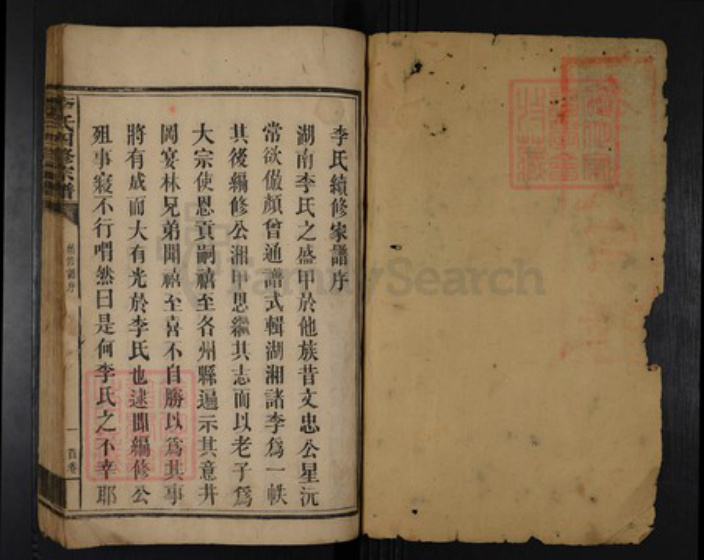 李氏續修家譜序
湖南李氏之盛甲於他族昔文忠公星沅
常欲倣顏曾通譜式輯湖湘諸李爲一帙
其後編修公湘甲思繼其志而以老子爲
大宗使恩貢嗣禧至各州縣遍示其意井
岡宴林兄弟聞禧至喜不自勝以爲其事
將有成而大有光於李氏也逮聞編修公
殂事寢不行喟然曰是何李氏之不幸耶
李氏四修宗譜
一
首卷
FamilySearch